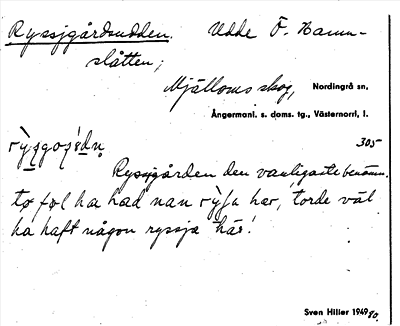 Ryssjgårdsudden. Udde Ö. Hamn-
slåtten,
Mjälloms skog, Nordingrå sn,
Ångermanl. s. doms. tg., Västernorrl. l.
305
Ryssjgården den vanligaste benämn.
ha had nan har, torde väl
ha haft någon ryssja här!
Sven Hiller 1949